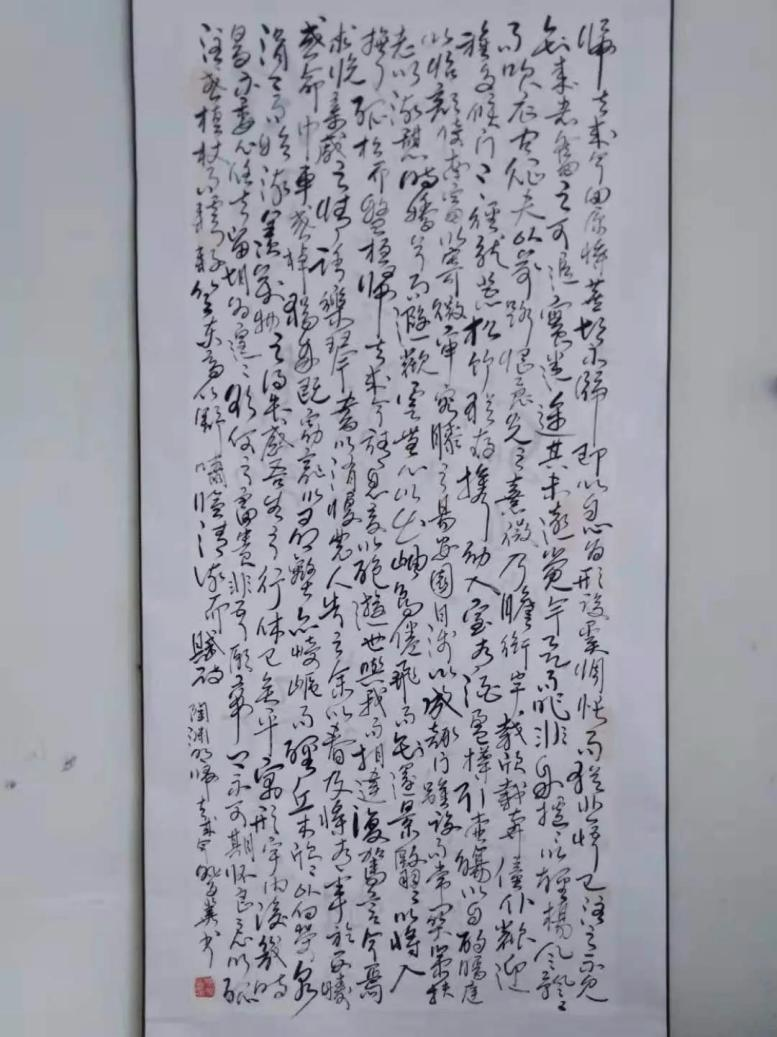 歸去來兮田園將蕪胡不歸即以心為形役奚惆悵而獨悲悟已往之不諫
知來者之可追實迷途其未遠覺今是而昨非舟搖搖以輕颺風飄飄
而吹衣問征夫以前路恨晨光之熹微乃瞻衡宇載欣載奔僮仆歡迎
稚子候門三徑就荒松竹猶存攜幼入室有酒盈樽引壺觴以自酌眄庭
以怡顏倚南窗以寄傲審容膝之易安園日涉以成趣門雖設而常關策扶
老以流憩時矯首而遐觀雲無心以出岫鳥倦飛而知還景翳翳以將入
撫孤松而盤桓歸去來兮請息交以絕遊世與我而相違復駕言兮焉
求悅親戚之情話樂琴書以消憂農人告之余以春及將有事於西疇
或命巾車或棹孤舟既窈窕以尋壑亦崎嶇而經丘木欣欣以向榮泉
涓涓而始流羨萬物之得時感吾生之行休已矣乎寓形宇內復幾時
曷不委心任去留胡為遑遑欲何之富貴非吾願帝鄉不可期懷良辰以孤
往或植杖而耘耔登東皋以舒嘯臨清流而賦詩 陶淵明歸去來兮 書